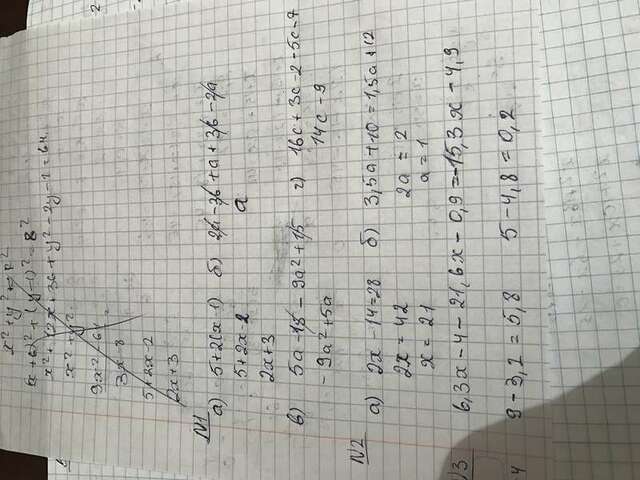 x² + y² = R²
(x + 6)² + (y - 1)² = 8²
x² + 12x + 36 + y² - 2y - 1 = 64.
x² + y²
9x² - 64 =
3x - 8
5 + 2x - 2
2x + 3
N1
а) 5 + 2(x - 1) б) 2a - 3b + a + 3b - 2a
5 + 2x - 2 a
2x + 3
в) 5a - 15 - 9a² + 15 г) 16c + 3c - 2 - 5c - 7
- 9a² + 5a 14c - 9
N2
а) 2x - 14 = 28 б) 3,5a + 10 = 1,5a + 12
2x = 42 2a = 2
x = 21 a = 1
3 6,3x - 4 - 21,6x - 0,9 = -15,3x - 4,9
4 9 - 3,2 = 5,8 5 - 4,8 = 0,2